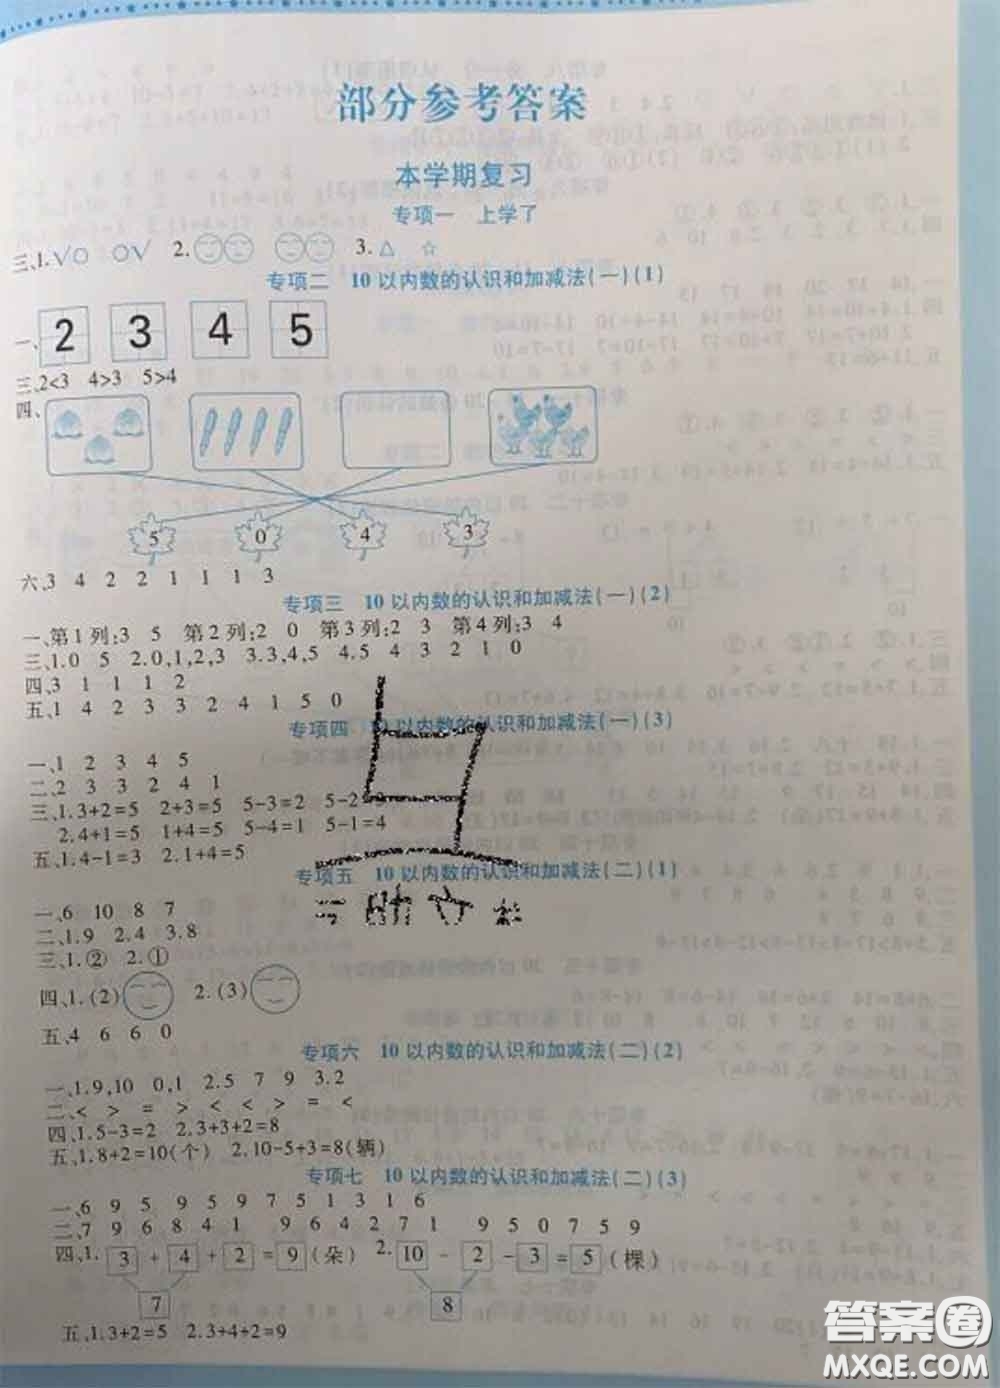 部分参考答案
本学期复习
专项一 上学了
三、1.√○ ○√ 2. 3.△ ☆
专项二 10以内数的认识和加减法(一)(1)
一、2 3 4 5
三、2<3 4>3 5>4
四、
5 0 4 3
六、3 4 2 2 1 1 1 3
专项三 10以内数的认识和加减法(一)(2)
一、第1列:3 5 第2列:2 0 第3列:2 3 第4列:3 4
三、1.0 5 2.0,1,2,3 3.3,4,5 4.5 4 3 2 1 0
四、3 1 1 1 2
五、1 4 2 3 3 2 4 1 5 0
专项四 10以内数的认识和加减法(一)(3)
一、1 2 3 4 5
二、2 3 3 2 4 1
三、1.3+2=5 2+3=5 5-3=2 5-2=3
2.4+1=5 1+4=5 5-4=1 5-1=4
五、1.4-1=3 2.1+4=5
专项五 10以内数的认识和加减法(二)(1)
一、6 10 8 7
二、1.9 2.4 3.8
三、1.② 2.①
四、1.(2) 2.(3)
五、4 6 6 0
专项六 10以内数的认识和加减法(二)(2)
一、1.9,10 0,1 2.5 7 9 3.2
二、< > = > < < > = <
四、1.5-3=2 2.3+3+2=8
五、1.8+2=10(个) 2.10-5+3=8(辆)
专项七 10以内数的认识和加减法(二)(3)
一、6 9 5 9 5 9 7 5 1 3 1 6
二、7 9 6 8 4 1 9 6 4 2 7 1 9 5 0 7 5 9
四、1. 3 + 4 + 2 = 9 (朵) 2. 10 - 2 - 3 = 5 (棵)
7 8
五、1.3+2=5 2.3+4+2=9
答案圈
MXQE.COM